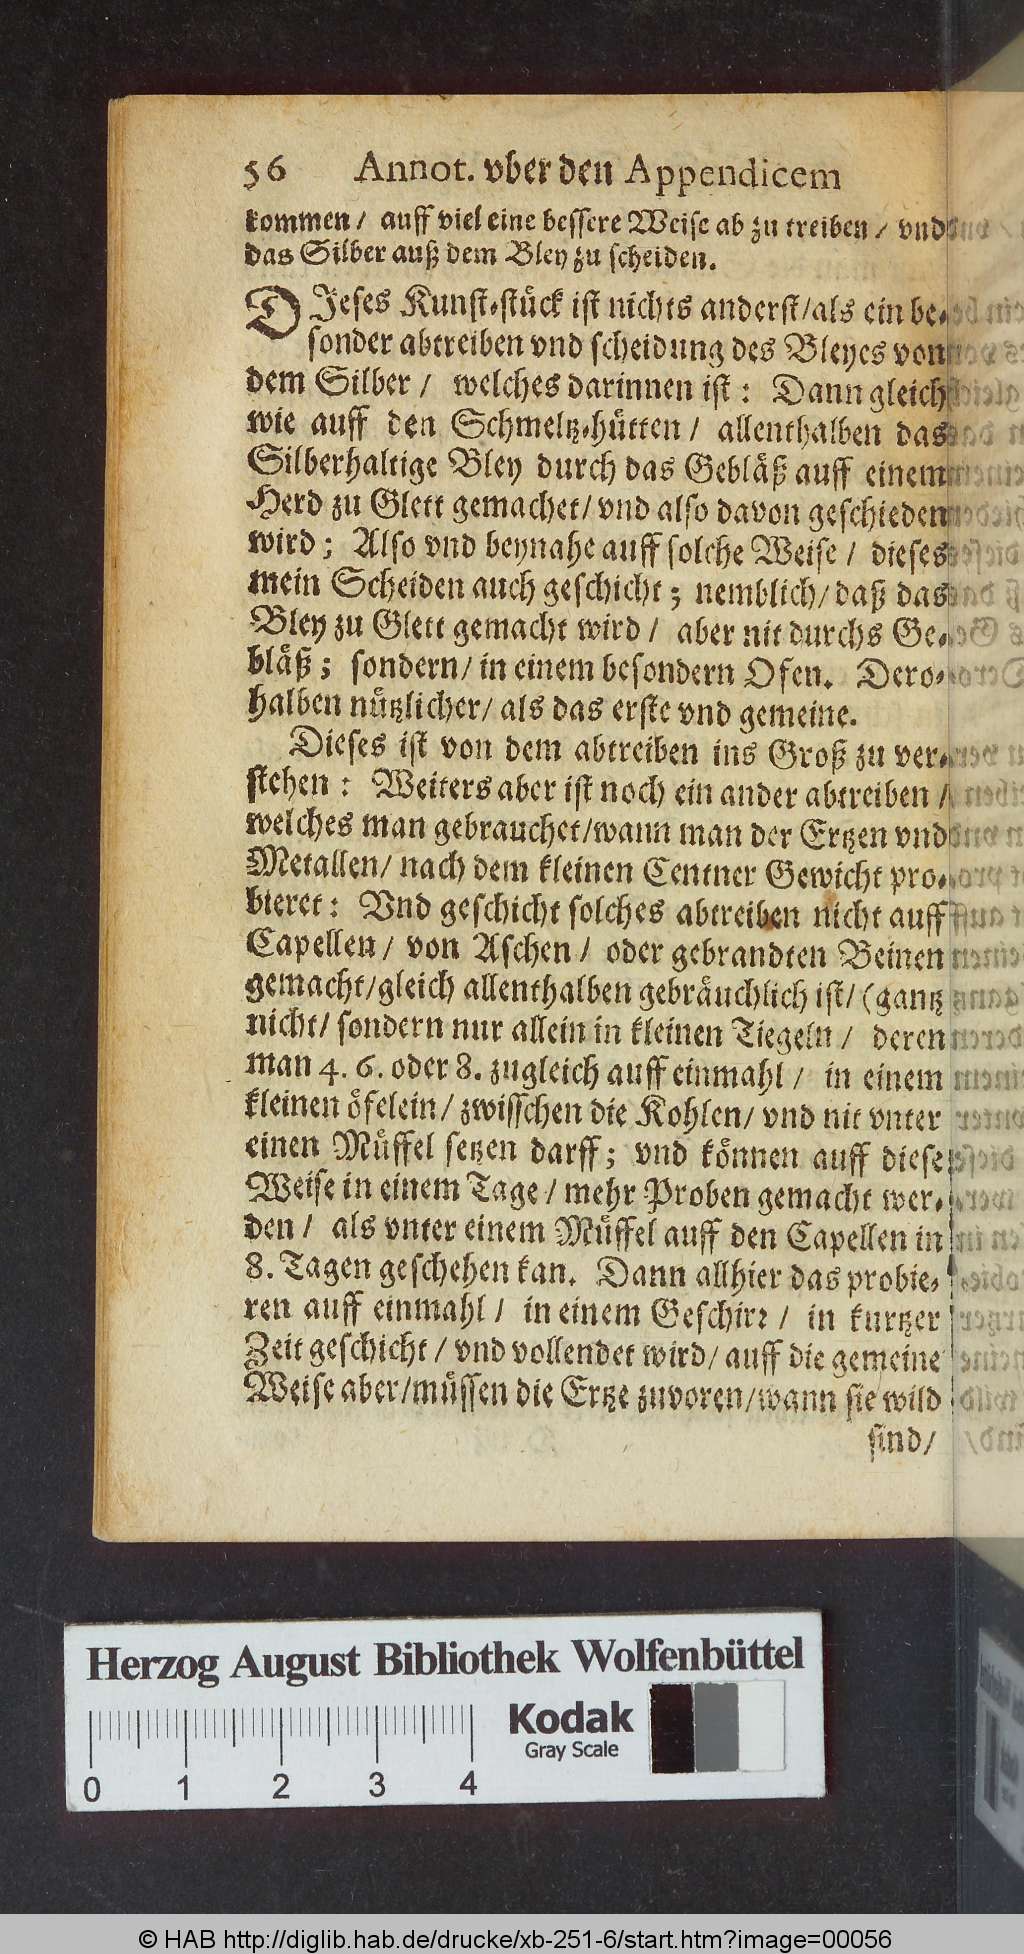 56 Annot. vber den Appendicem
kommen / auff viel eine bessere Weise ab zu treiben / vnd
das Silber auß dem Bley zu scheiden.
DIeses Kunst-stück ist nichts anderst/als ein be-
sonder abtreiben vnd scheidung des Bleyes von
dem Silber / welches darinnen ist: Dann gleich
wie auff den Schmeltz-hütten / allenthalben das
Silberhaltige Bley durch das Gebläß auff einem
Herd zu Glett gemachet/ vnd also davon geschieden
wird; Also vnd beynahe auff solche Weise / dieses
mein Scheiden auch geschicht; nemblich/ daß das
Bley zu Glett gemacht wird / aber nit durchs Ge-
bläß; sondern/ in einem besondern Ofen. Dero-
halben nützlicher/ als das erste vnd gemeine.
Dieses ist von dem abtreiben ins Groß zu ver-
stehen: Weiters aber ist noch ein ander abtreiben /
welches man gebrauchet/wann man der Ertzen vnd
Metallen/ nach dem kleinen Centner Gewicht pro-
bieret: Vnd geschicht solches abtreiben nicht auff
Capellen / von Aschen / oder gebrandten Beinen
gemacht/gleich allenthalben gebräuchlich ist/ (gantz
nicht/ sondern nur allein in kleinen Tiegeln / deren
man 4. 6. oder 8. zugleich auff einmahl / in einem
kleinen öfelein/ zwisschen die Kohlen/ vnd nit vnter
einen Müffel setzen darff; vnd können auff diese
Weise in einem Tage / mehr Proben gemacht wer-
den / als vnter einem Müffel auff den Capellen in
8. Tagen geschehen kan. Dann allhier das probie-
ren auff einmahl / in einem Geschirr / in kurtzer
Zeit geschicht / vnd vollendet wird/ auff die gemeine
Weise aber/müssen die Ertze zuvoren/wann sie wild
sind/
Herzog August Bibliothek Wolfenbüttel
Kodak
Gray Scale
0 1 2 3 4
© HAB http://diglib.hab.de/drucke/xb-251-6/start.htm?image=00056